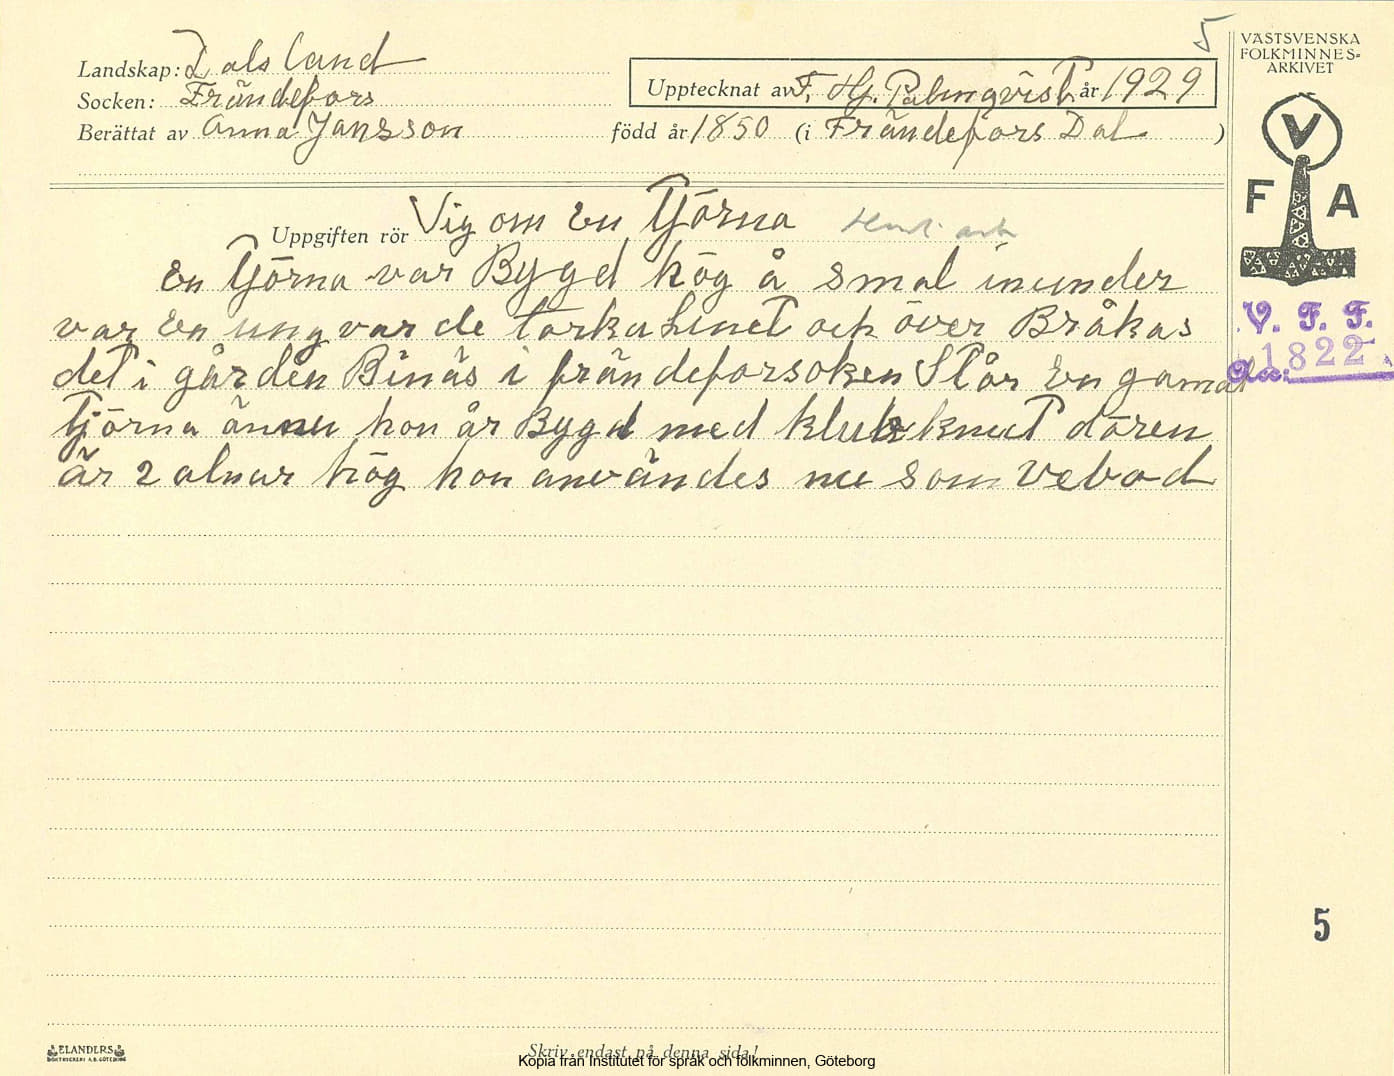 5
VÄSTSVENSKA
FOLKMINNES=
ARKIVET
Landskap: Dalsland
Upptecknat av F. Hj. Palmqvist år 1929
Socken: Frändefors
Berättat av Anna Jansson född år 1850 (i Frändefors Dal )
V
F A
Uppgiften rör Vig om en Tjörna
en Tjörna var Bygd hög å smal inunder
var en ung var de torka Linet och över Bråkas
det i gården Binäs i frändeforsoken Står en gamal
Tjörna ännu hon är Bygd med klubbknut dören
är 2 alnar hög hon användes nu som vebod
V. F. F.
Acc: 1822
5
ELANDERS
BOKTRYCKERI A.B. GÖTEBORG
Skriv endast på denna sida!
Kopia från Institutet för språk och folkminnen, Göteborg